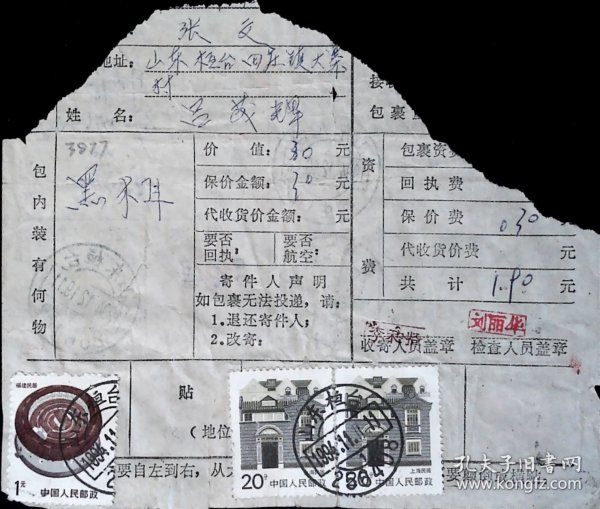 张文
地址：山东桓台田庄镇大寨
村
姓名：吕茂辉
包裹
3877
包内装有何物
黑木耳
价值：30元
保价金额：30元
代收货价金额：元
要否回执：
要否航空：
寄件人声明
如包裹无法投递，请：
1.退还寄件人；
2.改寄：
资费
包裹资费
回执费
保价费 0.30元
代收货价费 元
共计 1.90元
刘丽华
收寄人员盖章 检查人员盖章
贴
（地位
要自左到右，从
福建民居
1元
中国人民邮政
山东桓台
1994.11.
20分
中国人民邮政
上海民居
中国人民邮政
山东桓台
1994.11.
256408
孔夫子旧书网
www.kongfz.com